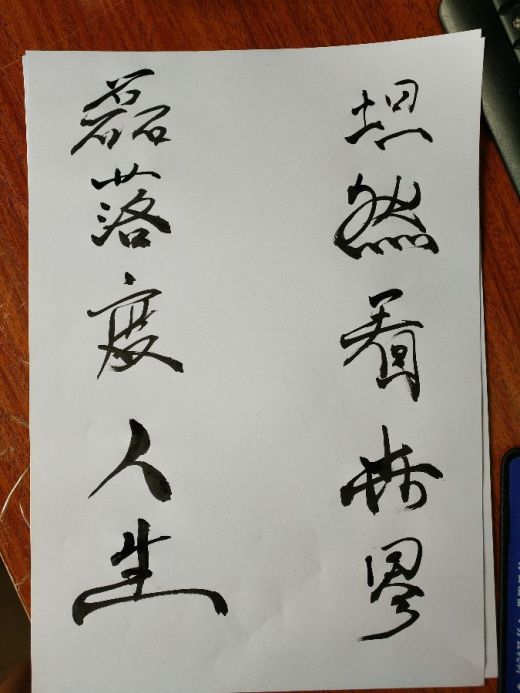 坦然看世界
磊落度人生